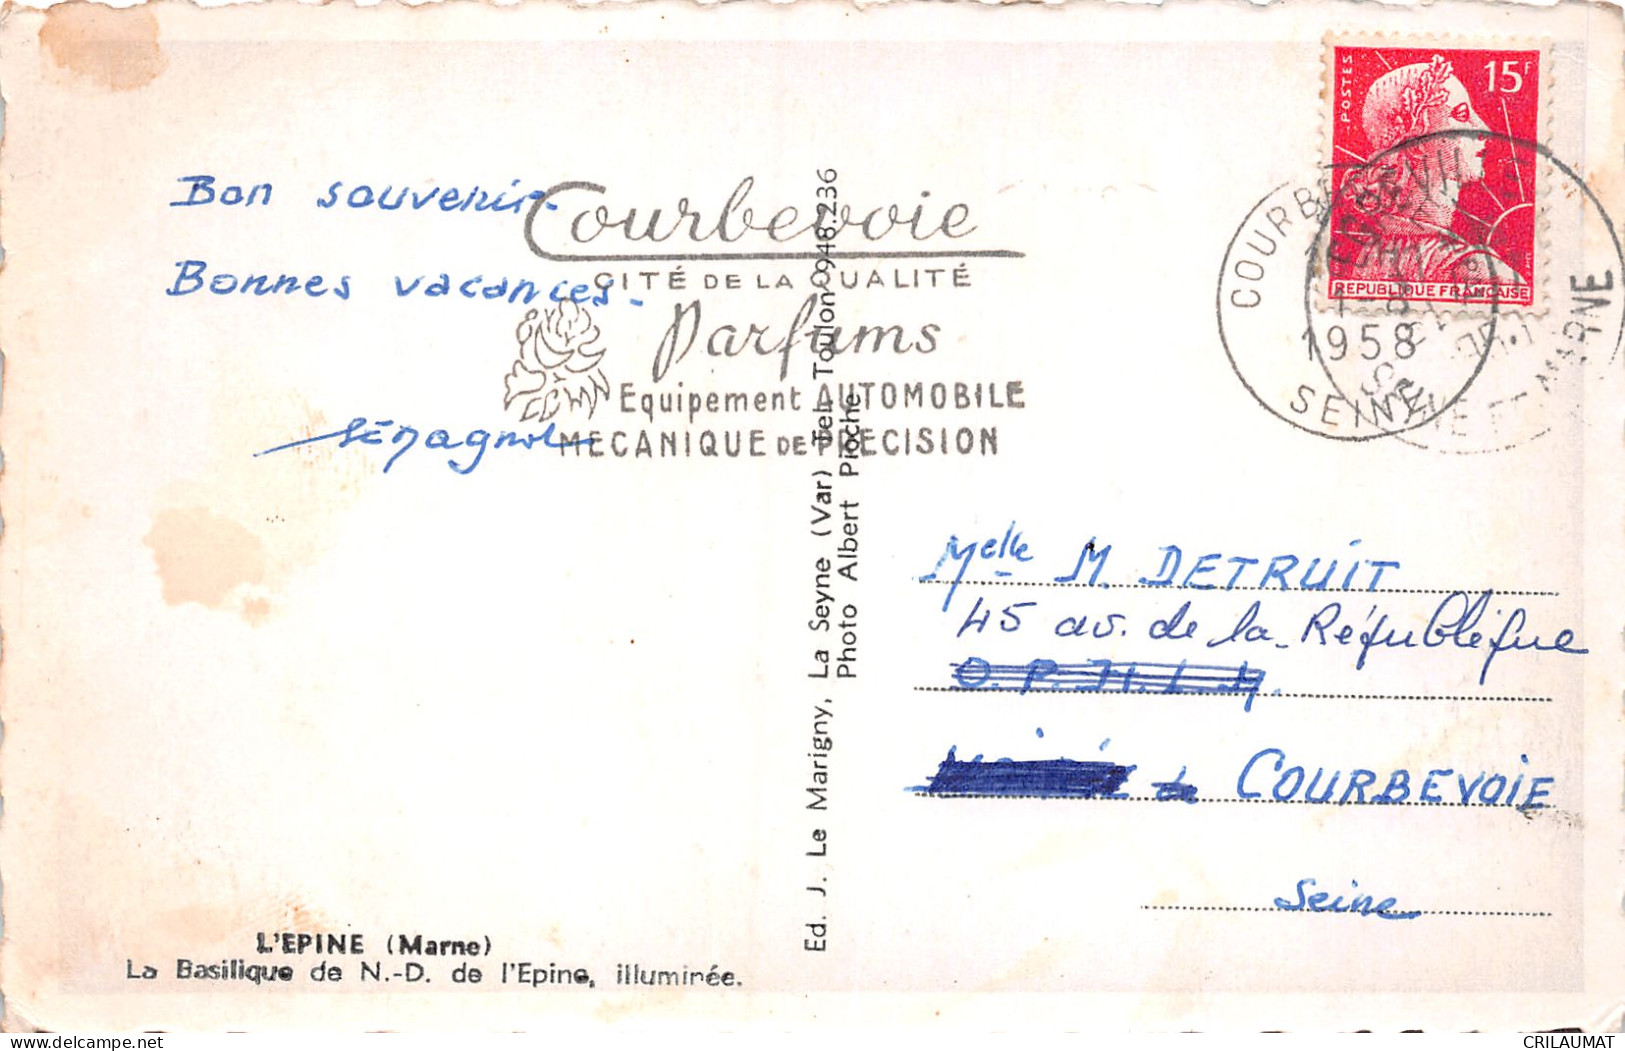 POSTES
15F
REPUBLIQUE FRANÇAISE
COURBEVOIE
1-8
1958
SEINE
SEINE ET MARNE
Bon souvenir.
Bonnes vacances.
Courbevoie
CITÉ DE LA QUALITÉ
Parfums
Equipement AUTOMOBILE
MECANIQUE DE PRECISION
Ed. J. Le Marigny, La Seyne (Var) Tel. Toulon 948.236
Photo Albert Pioche
Melle M. DETRUIT
45 av. de la République
O.P.H.L.M.
Mairie de COURBEVOIE
Seine
L'EPINE (Marne)
La Basilique de N.-D. de l'Epine, illuminée.
CRILAUMAT